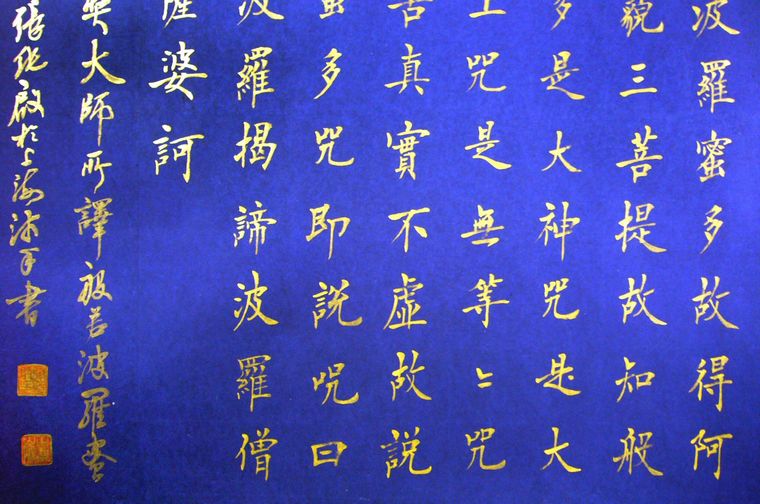 波羅蜜多故得阿
藐三菩提故知般
多是大神咒是大
上咒是無等〻咒
苦真實不虛故說
蜜多咒即說咒曰
波羅揭諦波羅僧
薩婆訶
奘大師所譯般若波羅蜜
啟於上海沐手書